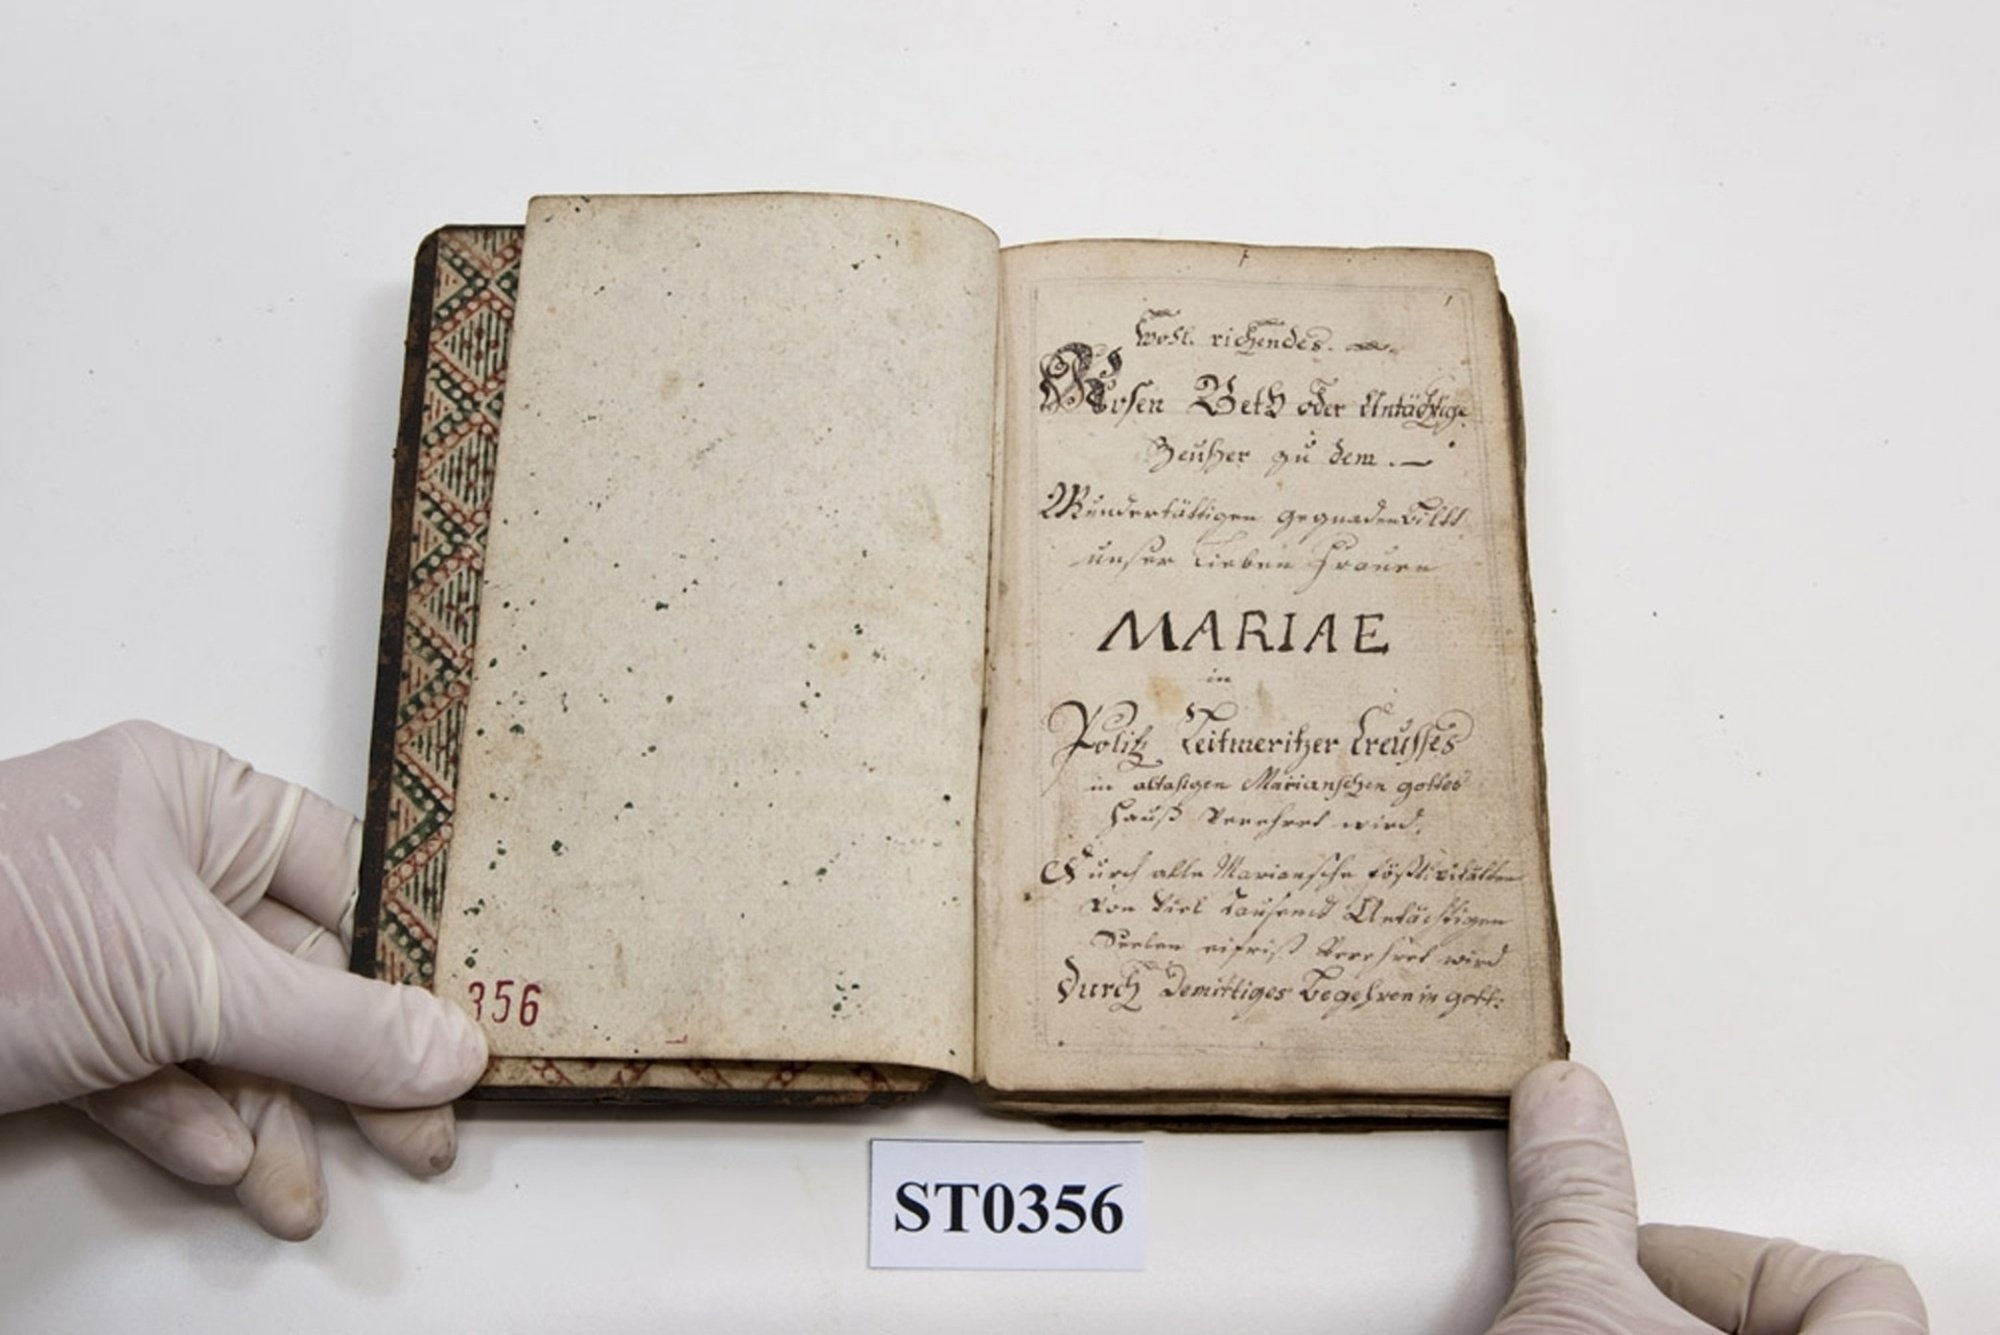 356
1
Wohl. richendes.
Rosen Beth oder Antächtige
Zeufzer zu dem.
Wundertättigen gegnadenbiltt
unser Lieben Frauen
MARIAE
in
Politz Leitmeritzer Creusses
in altahigen Marianschen gottes
Hauß Verehret wird.
Durch alle Mariansche föstivitätten
Von Viel Tausendt Antächtigen
Seelen eifriß Verehret wird
Durch Demüttiges Begehren in gott:
ST0356